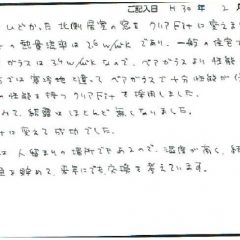 ご記入日 H30年 2月
ひどかった北側居室の窓をクリアFitに変えま
の熱貫流率は2.6W/㎡Kであり、一般の住宅
ガラスは3.4W/㎡Kなので、ペアガラスより性能が
では寒冷地と違ってペアガラスで十分性能が
の性能を持つクリアFitを使用しました。
めて、結露はほとんど無くなりました。
に変えて成功でした。
は人が集まりの場所でもあるので、湿度が高く、結
を含めて、来年にでも交換を考えています。